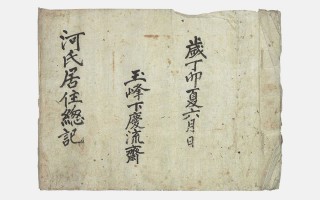 歲丁卯夏六月日
玉峰下慶流齋
河氏居住總記